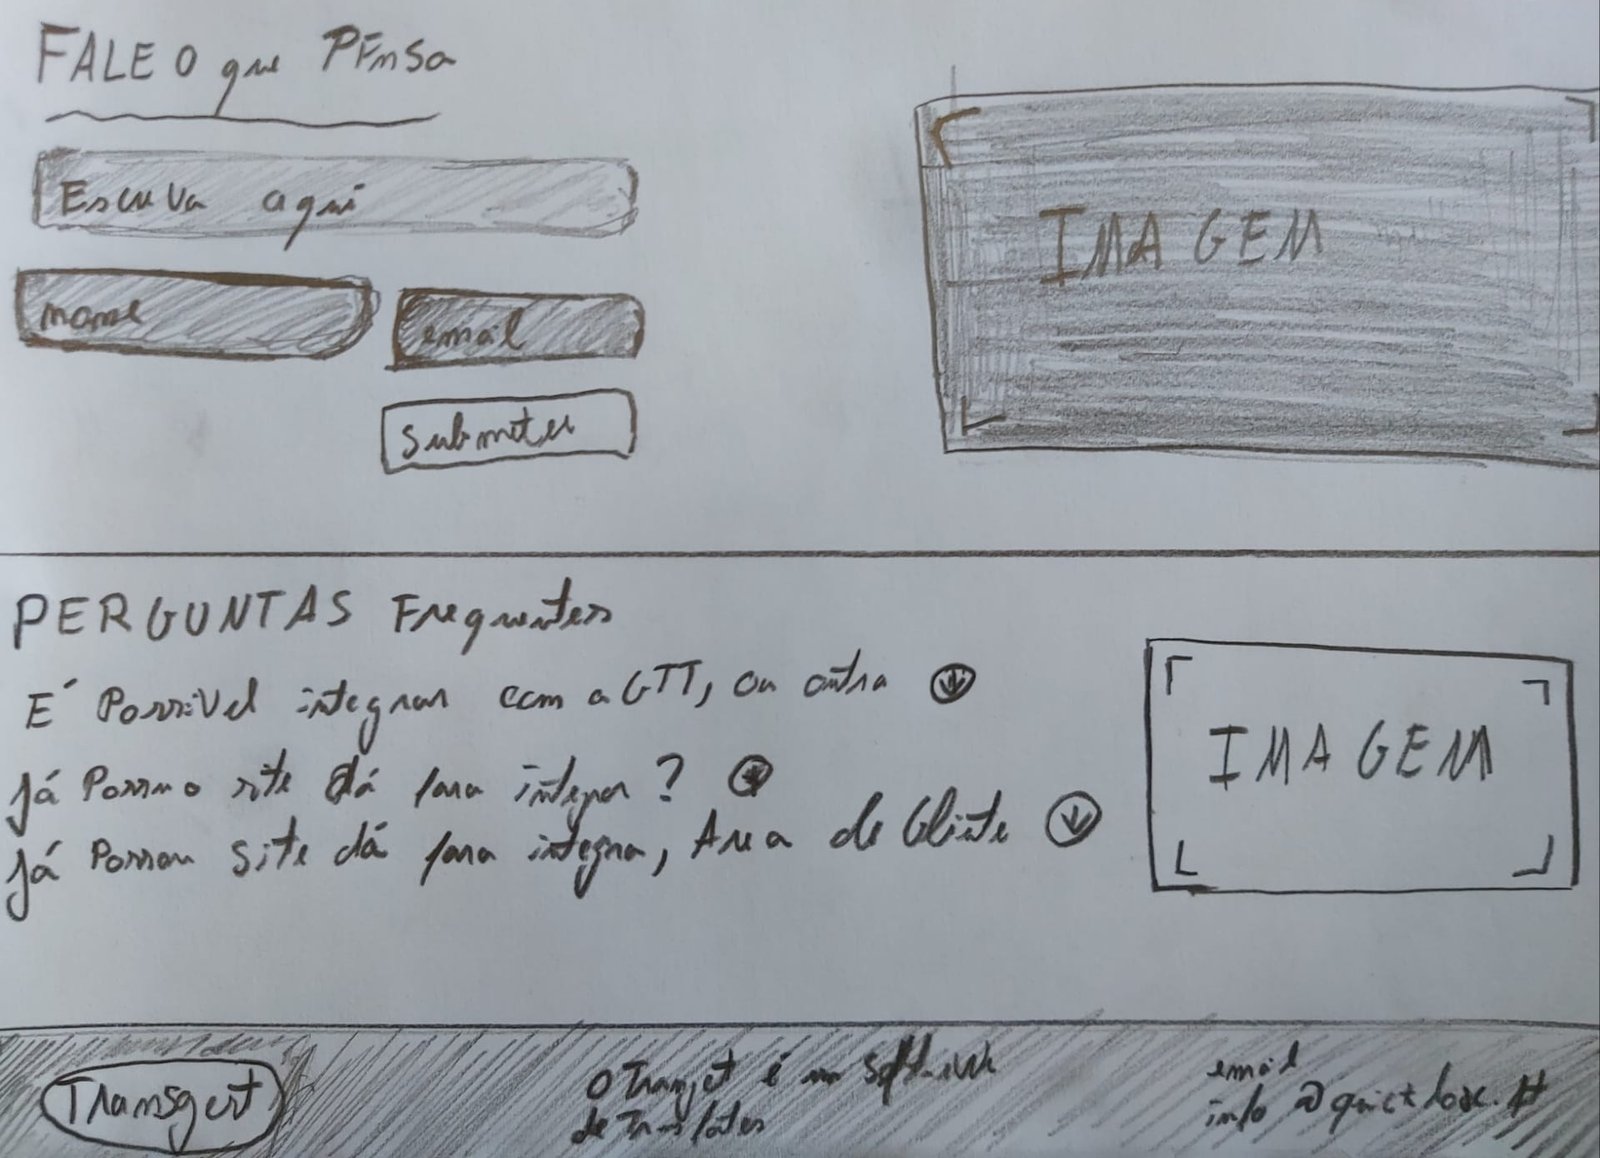 FALE O que PEnsa
Escreva aqui
nome
email
Submeter
IMAGEM
PERGUNTAS Frequentes
É Possivel integrar com a GTT, ou outra
Já Possuo site dá para integrar?
Já Possuo site dá para integra, Area de Cliente
IMAGEM
Transgest
O Transgest é um software
de Transportes
email